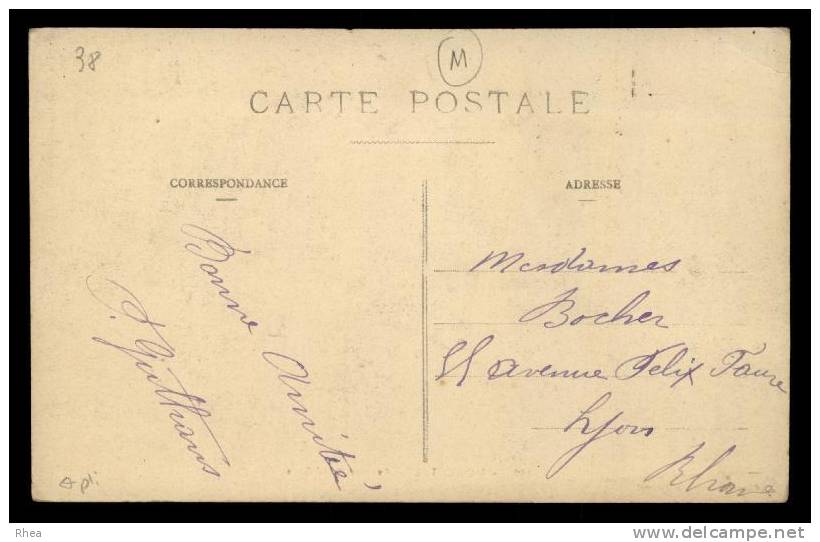 38
M
CARTE POSTALE
CORRESPONDANCE
ADRESSE
Bonne Amitié
Mesdames
Bocher
55 avenue Felix Faure
Lyon
Rhône
Rhea
http://www.delcampe.net